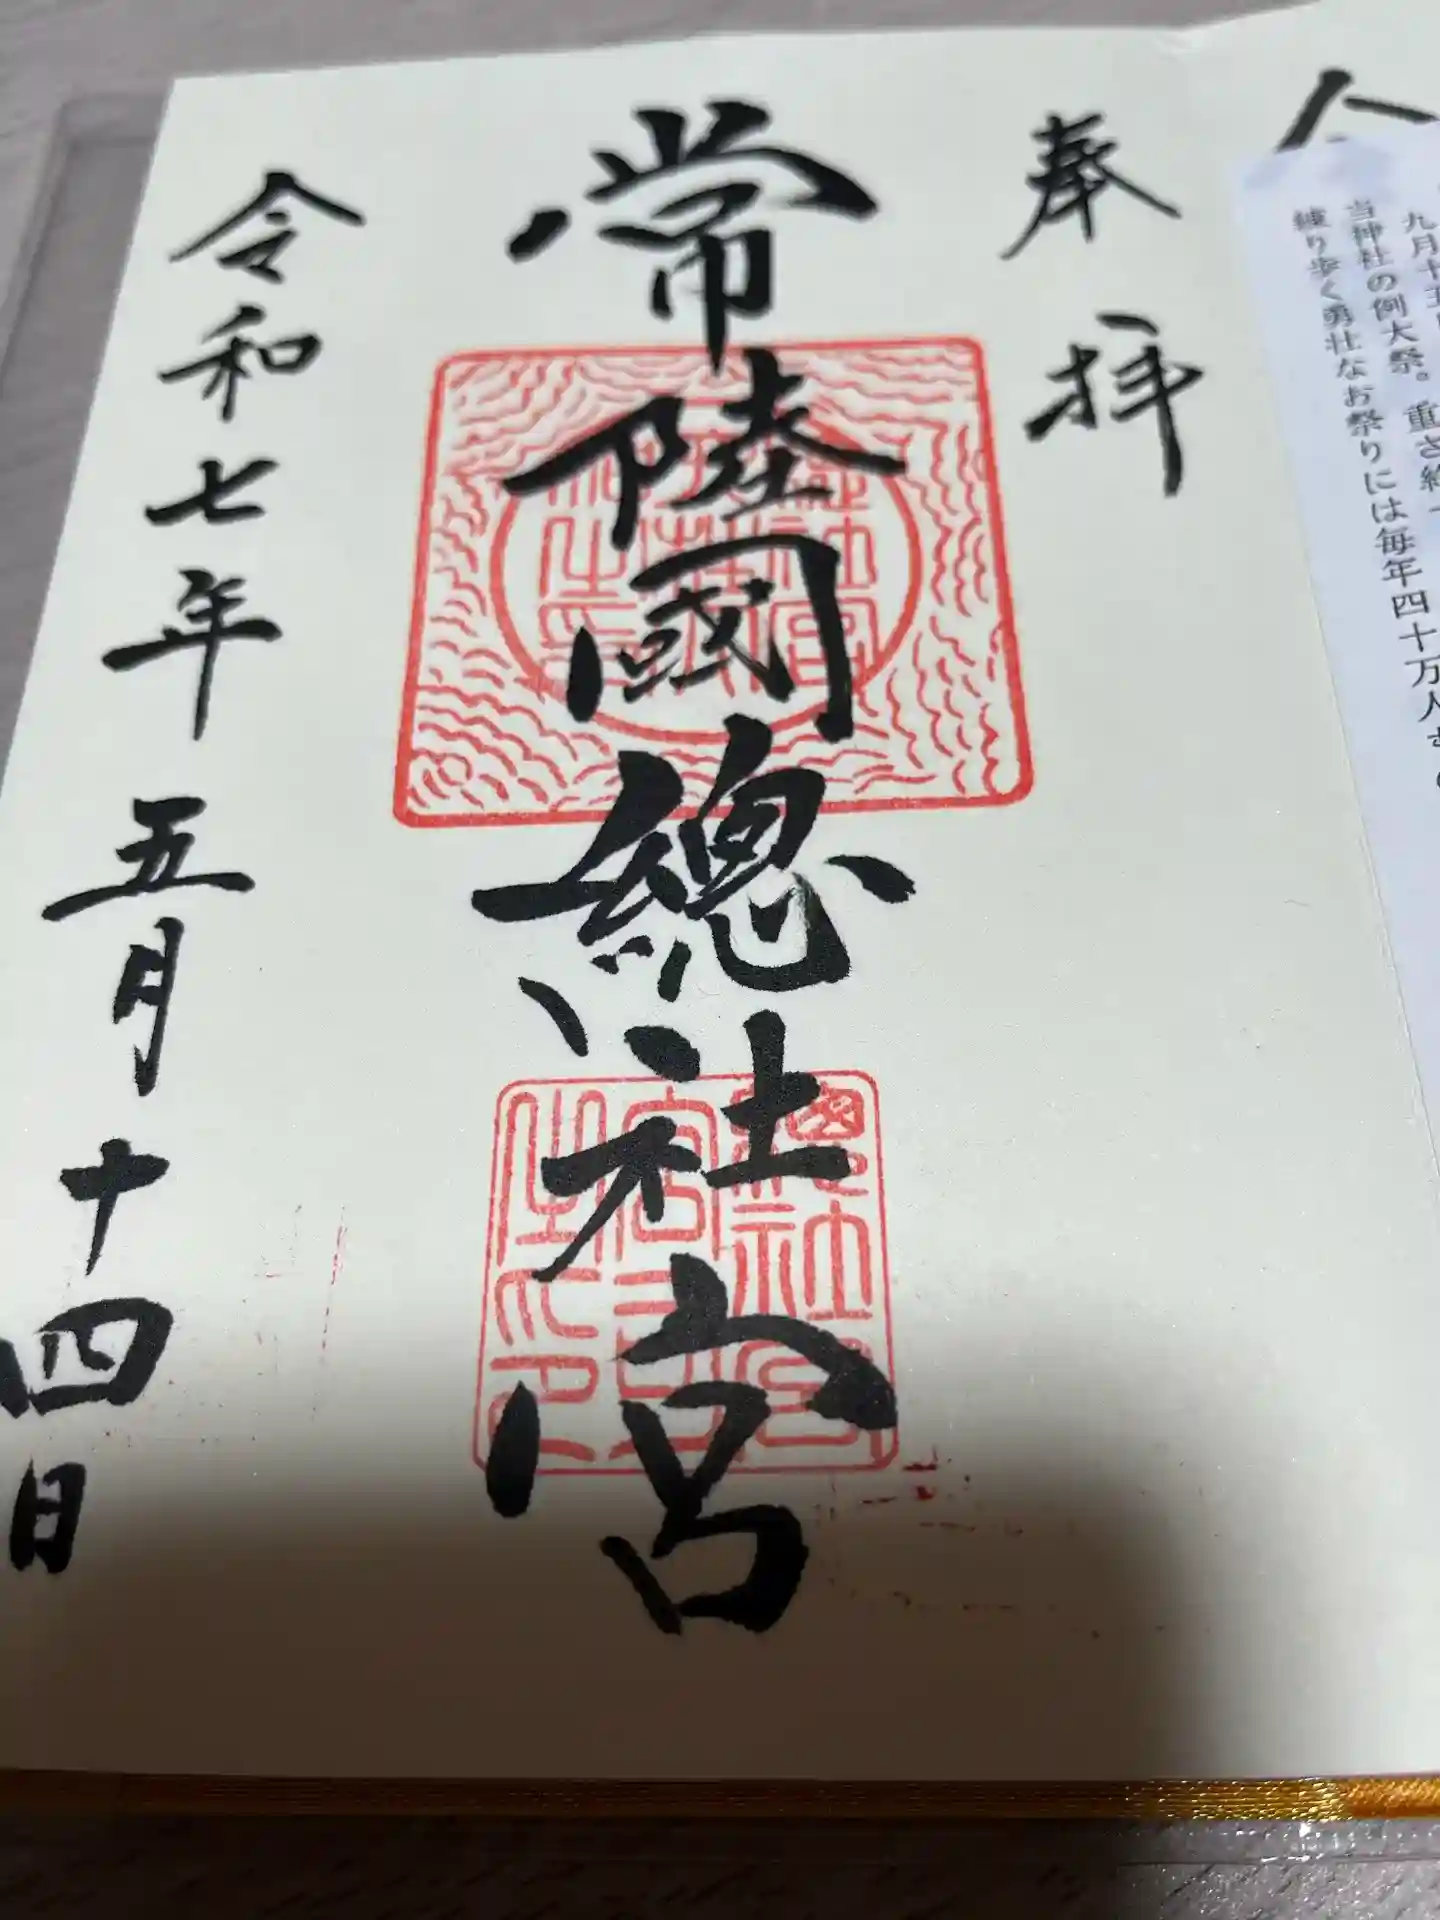 九月十五日
重さ
当神社の例大祭。
練り歩く勇壮なお祭りには毎年四十万人も
奉拝
常陸國總社宮
令和七年五月十四日